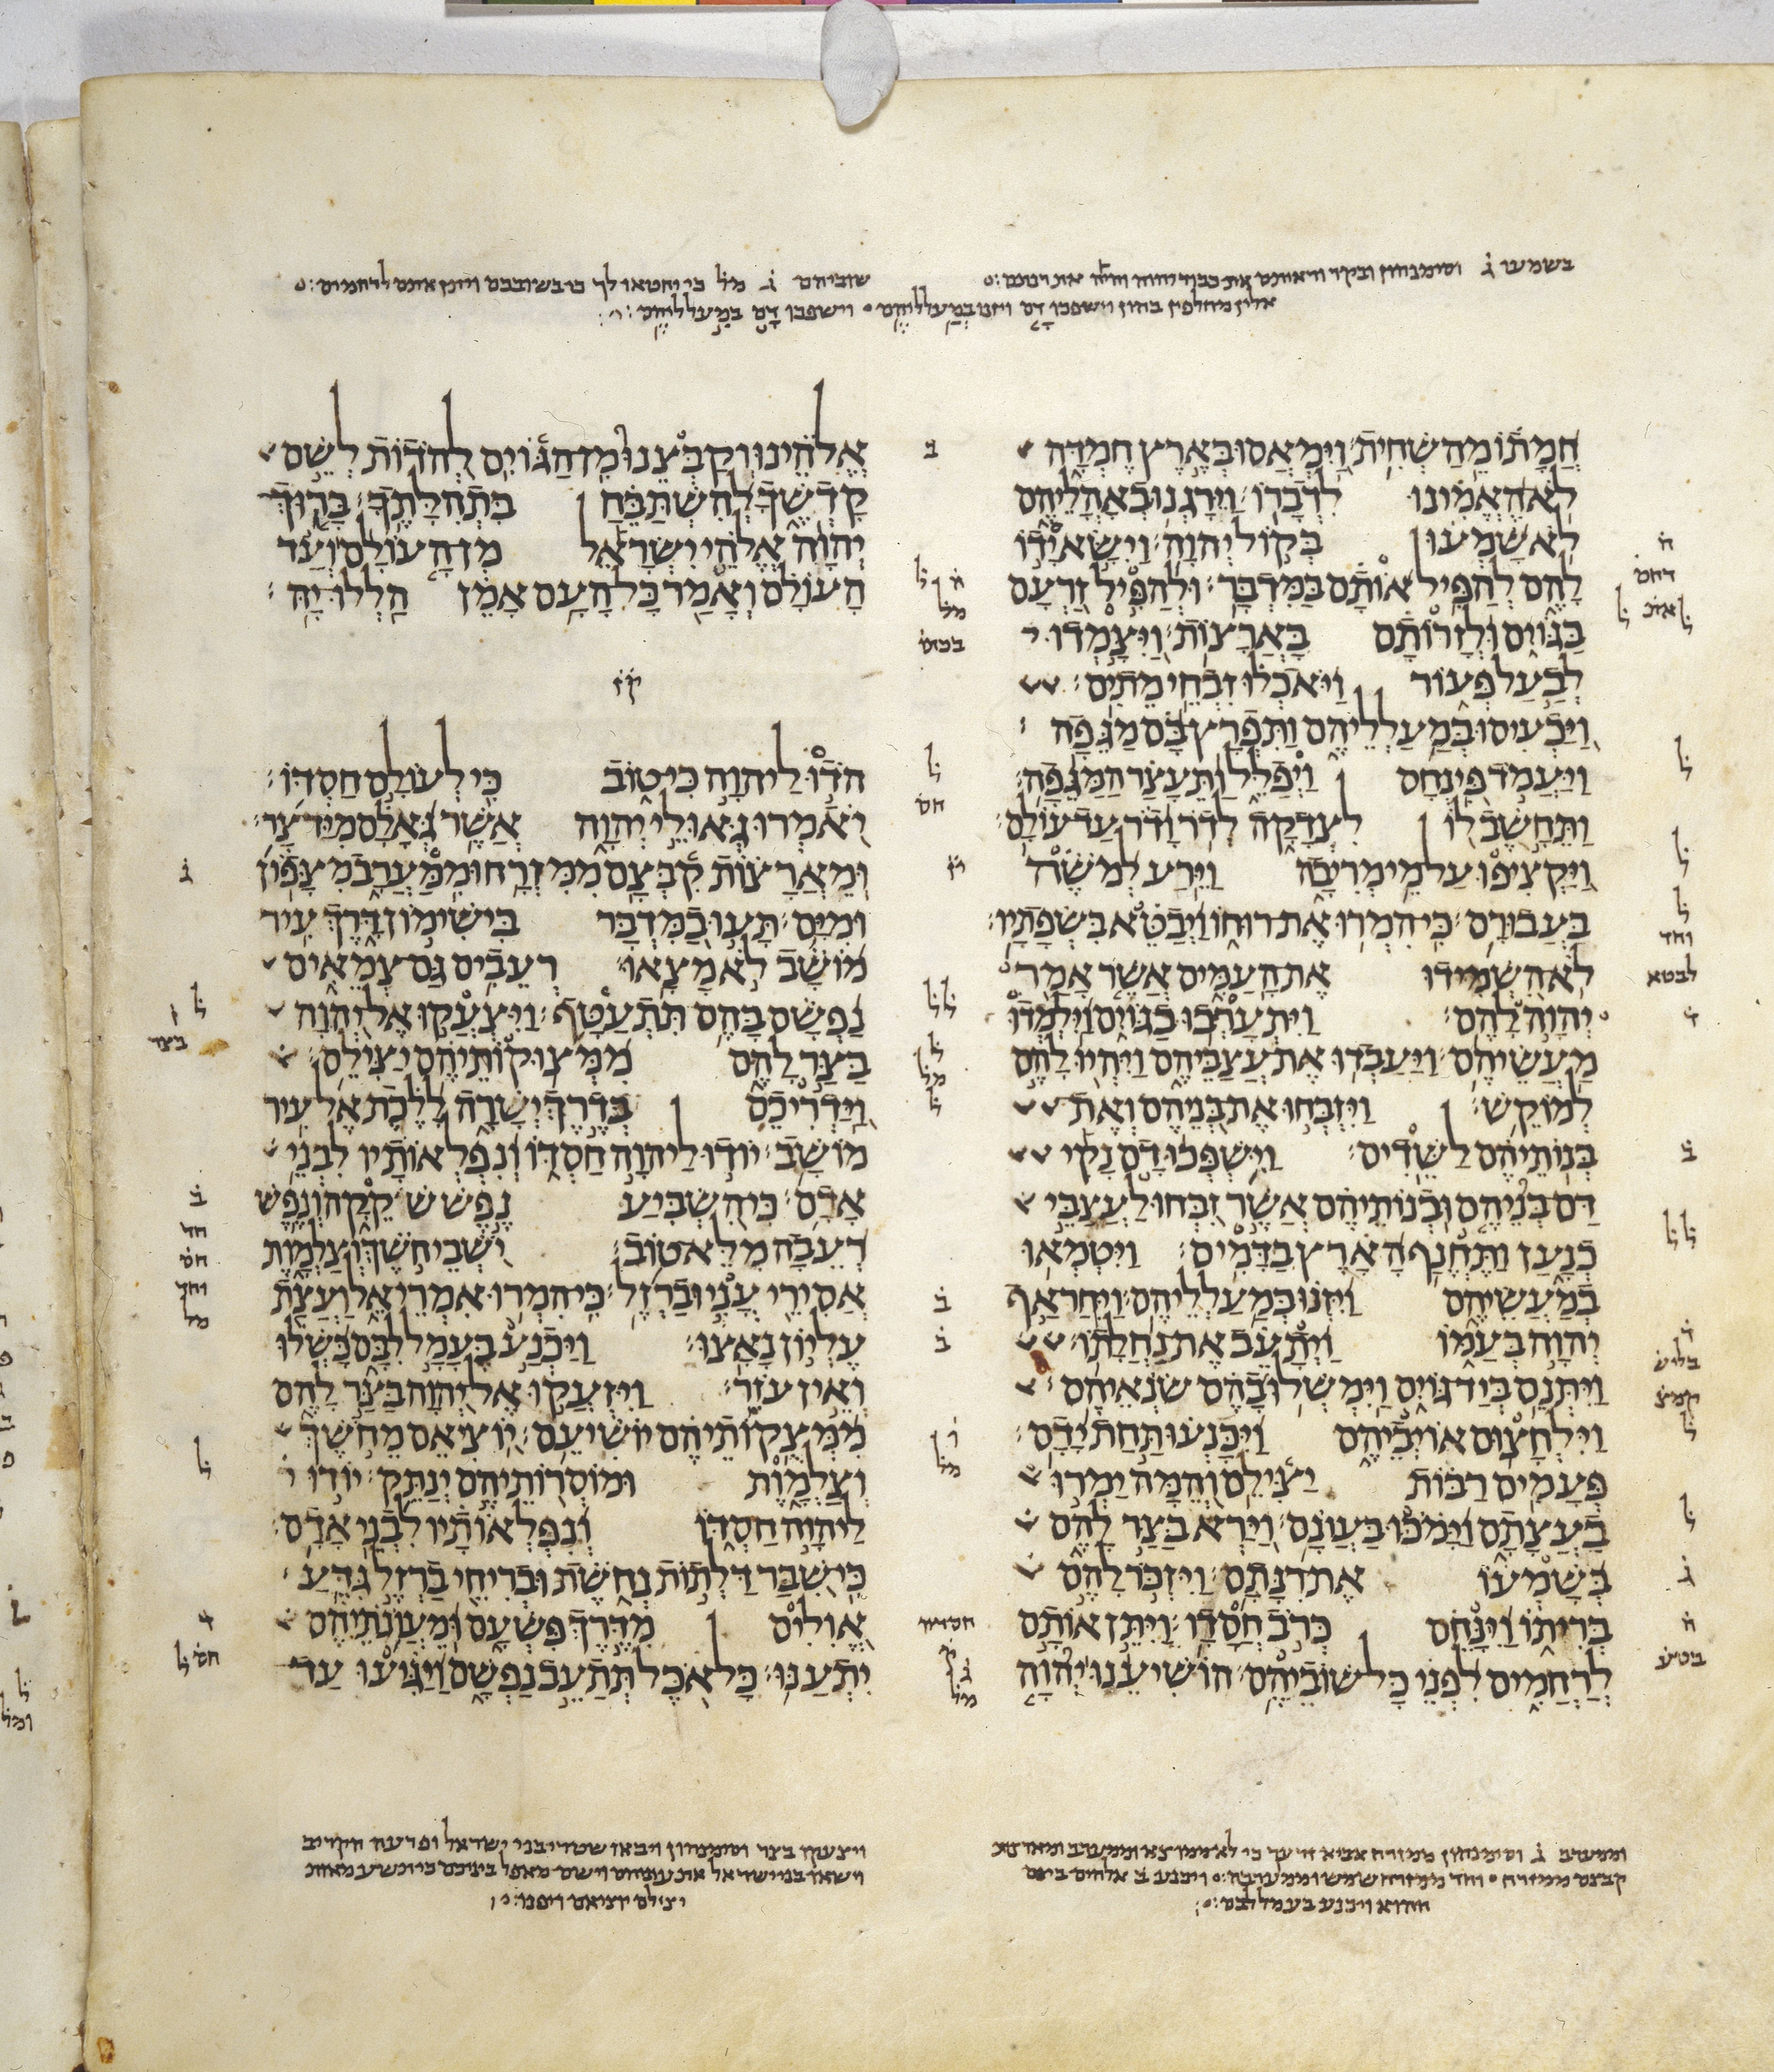 בשמעו ג וסימנהון ובקר וראיתם את כבוד יהוה
שוביהם ג מל כי יחטאו לך
אלין מחלפין בהון וישפכו דם ויזנו במעלליהם וישפכו דם במעלליהם
חמתו מהשחית וימאסו בארץ חמדה
לא האמינו לדברו וירגנו באהליהם
לא שמעו בקול יהוה וישא ידו
להם להפיל אותם במדבר ולהפיל זרעם
בגוים ולזרותם בארצות ויצמדו
לבעל פעור ויאכלו זבחי מתים
ויכעיסו במעלליהם ותפרץ בם מגפה
ויעמד פינחס ויפלל ותעצר המגפה
ותחשב לו לצדקה לדר ודר עד עולם
ויקציפו על מי מריבה וירע למשה
בעבורם כי המרו את רוחו ויבטא בשפתיו
לא השמידו את העמים אשר אמר
יהוה להם ויתערבו בגוים וילמדו
מעשיהם ויעבדו את עצביהם ויהיו להם
למוקש ויזבחו את בניהם ואת
בנותיהם לשדים וישפכו דם נקי
דם בניהם ובנותיהם אשר זבחו לעצבי
כנען ותחנף הארץ בדמים ויטמאו
במעשיהם ויזנו במעלליהם ויחר אף
יהוה בעמו ויתעב את נחלתו
ויתנם ביד גוים וימשלו בהם שנאיהם
וילחצום אויביהם ויכנעו תחת ידם
פעמים רבות יצילם והמה ימרו
בעצתם וימכו בעונם וירא בצר להם
בשמעו את רנתם ויזכר להם
בריתו וינחם כרב חסדו ויתן אותם
לרחמים לפני כל שוביהם הושיענו יהוה
אלהינו וקבצנו מן הגוים להדות לשם
קדשך להשתבח בתהלתך ברוך
יהוה אלהי ישראל מן העולם ועד
העולם ואמר כל העם אמן הללו יה
קז
הדו ליהוה כי טוב כי לעולם חסדו
יאמרו גאולי יהוה אשר גאלם מיד צר
ומארצות קבצם ממזרח וממערב מצפון
ומים תעו במדבר בישימון דרך עיר
מושב לא מצאו רעבים גם צמאים
נפשם בהם תתעטף ויצעקו אל יהוה
בצר להם ממצוקותיהם יצילם
וידריכם בדרך ישרה ללכת אל עיר
מושב יודו ליהוה חסדו ונפלאותיו לבני
אדם כי השביע נפש שקקה ונפש
רעבה מלא טוב ישבי חשך וצלמות
אסירי עני וברזל כי המרו אמרי אל ועצת
עליון נאצו ויכנע בעמל לבם כשלו
ואין עזר ויזעקו אל יהוה בצר להם
ממצקותיהם יושיעם יוציאם מחשך
וצלמות ומוסרותיהם ינתק יודו
ליהוה חסדו ונפלאותיו לבני אדם
כי שבר דלתות נחשת ובריחי ברזל גדע
אולים מדרך פשעם ומעונתיהם
יתענו כל אכל תתעב נפשם ויגיעו עד
וממערב ג וסימנהון ממזרח אביא
קבצם ממזרח וחד ממזרח שמש וממערבה ויכנע ב אלהים ביום
ההוא ויכנע בעמל לבם
ויצעקו בצר וסימנהון ויבאו שטרי בני ישראל ופרעה הקריב
וישאו בני ישראל את עיניהם וישם מאפל ביניכם
יצילם יוציאם ויפנו